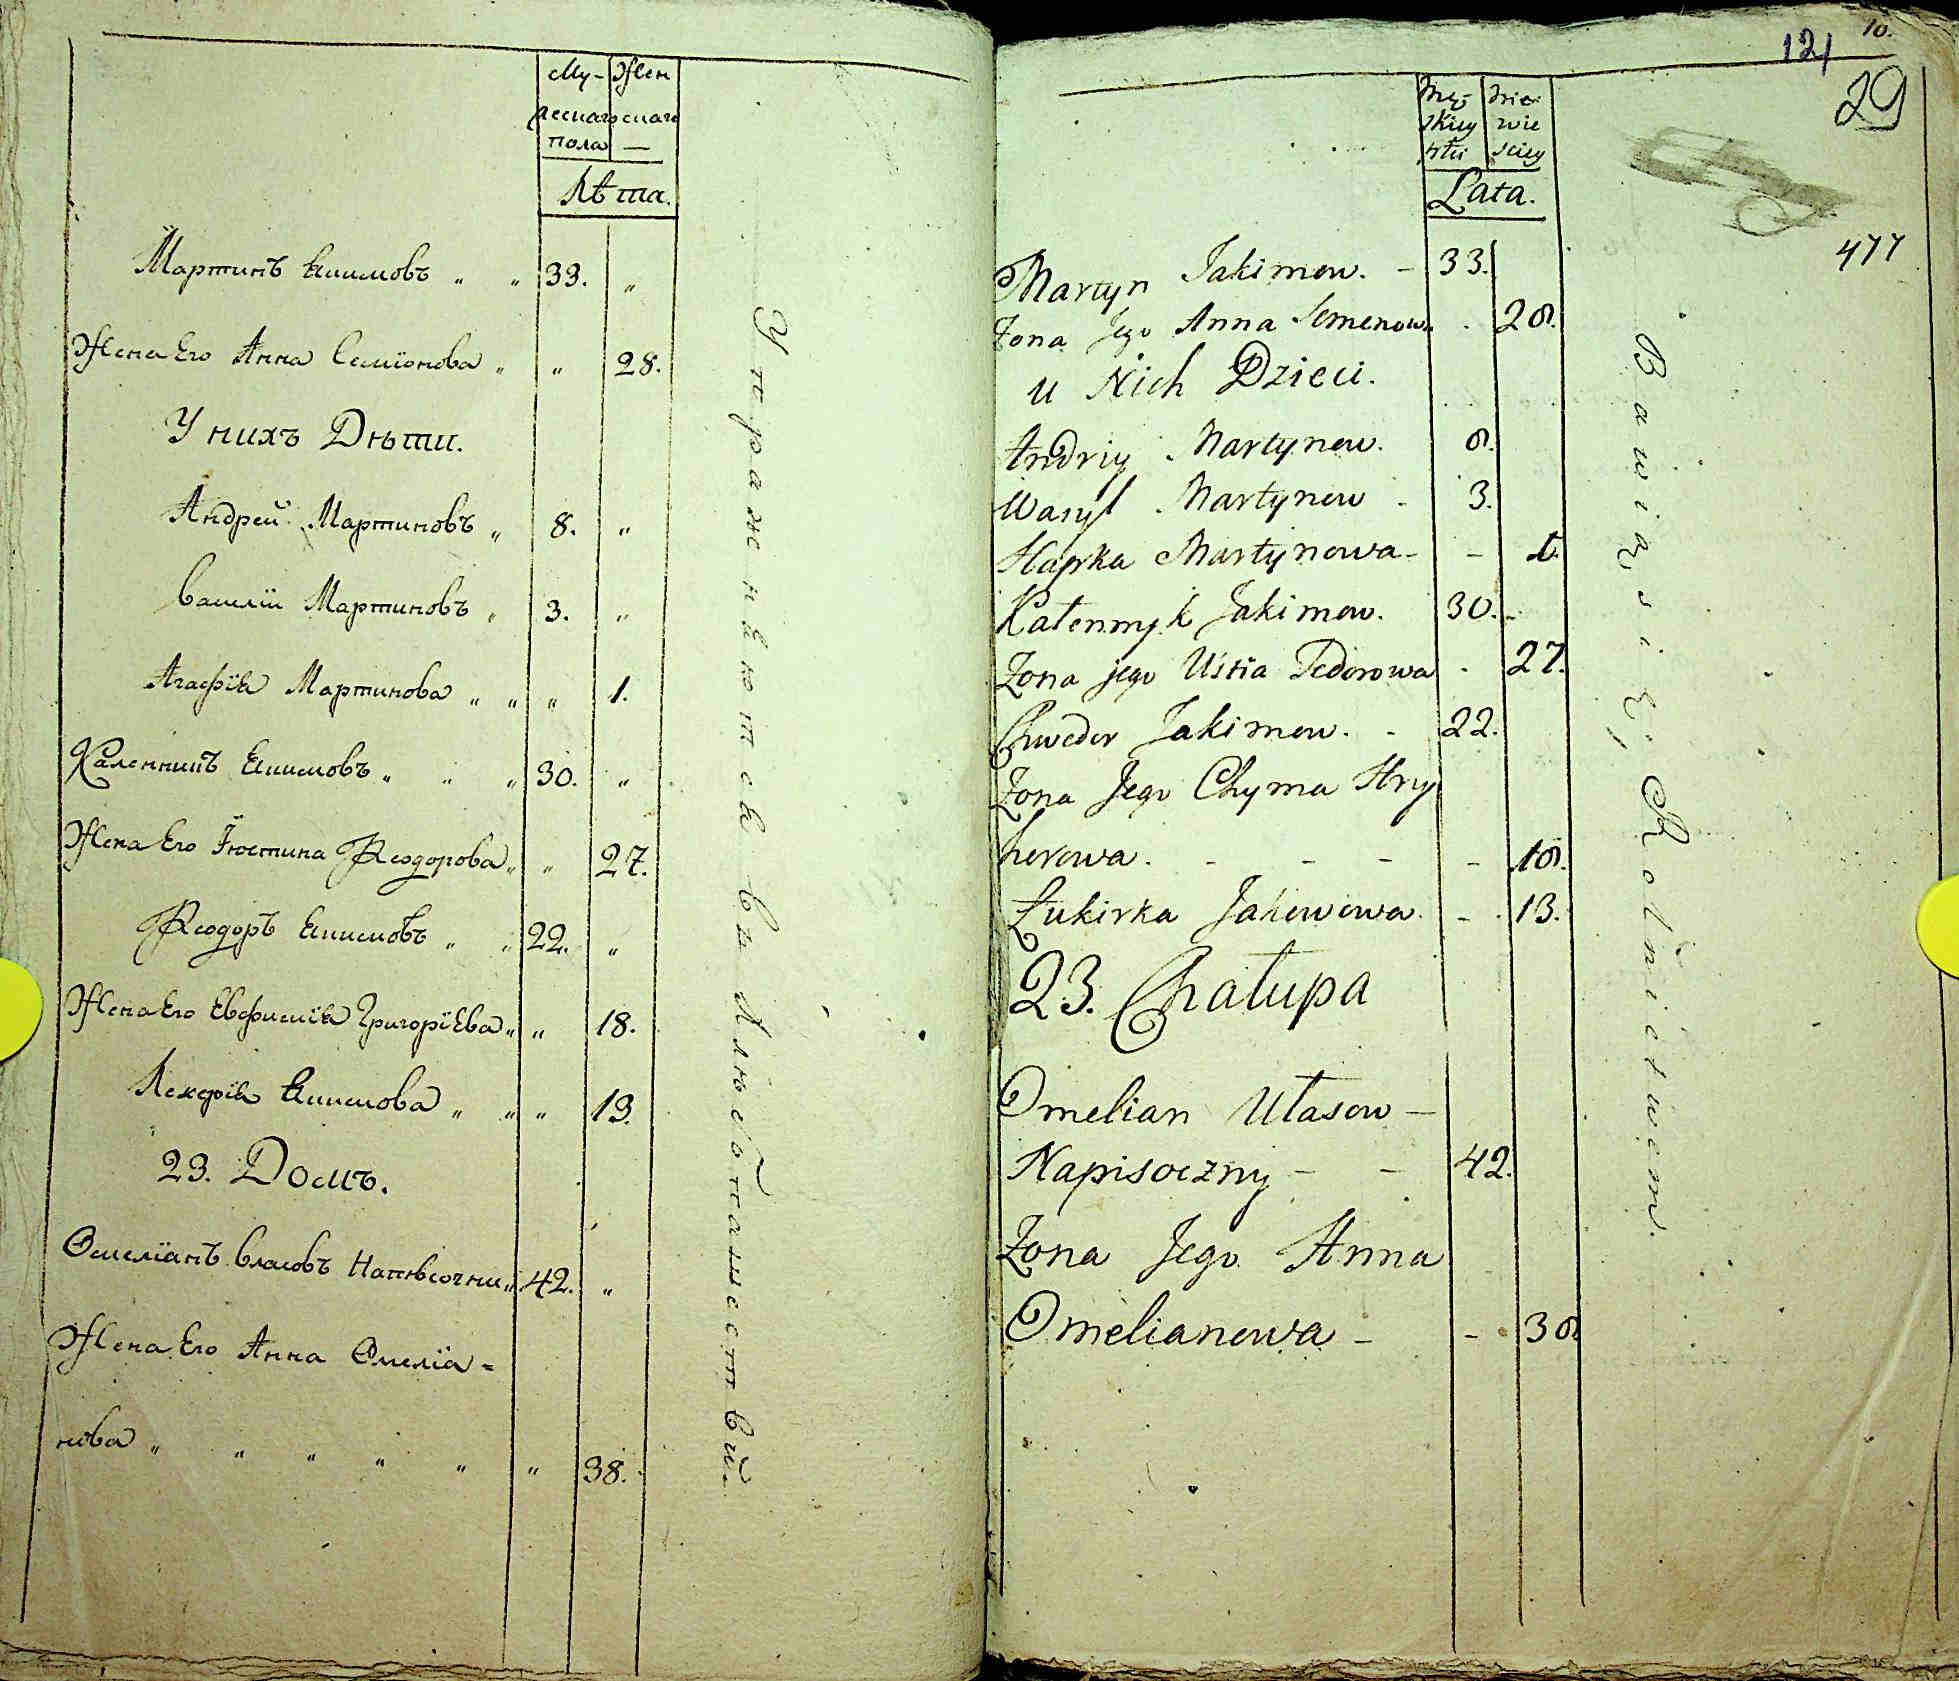 Му- Жен
жескаго скаго
пола —
Лѣта.
Мартинъ Якимовъ „ „ 33. „
Жена Его Анна Семіонова „ „ 28.
У нихъ Дѣти.
Андрей Мартиновъ „ 8. „
Василій Мартиновъ „ 3. „
Агафія Мартинова „ „ „ 1.
Каленникъ Якимовъ „ „ „ 30. „
Жена Его Іюстина Ѳеодорова „ „ 27.
Ѳеодоръ Якимовъ „ „ 22. „
Жена Его Евфимія Григоріева „ „ 18.
Лекерія Якимова „ „ „ 13.
23. Домъ.
Омеліанъ Власовъ Напѣсочни „ 42. „
Жена Его Анна Омеліа=
нова „ „ „ „ „ „ 38.
Упражняются въ хлѣбопашествїи
10.
121
29
477
Mę- Niei
skiey wie
płci sciey
Lata.
Martyn Jakimow. - 33.
Żona Jego Anna Semenowa . 28.
u Nich Dzieci.
Andriy Martynow. 8.
Wasyl Martynow - 3.
Hapka Martynowa - - 1.
Kałennyk Jakimow. 30. -
Żona jego Ustia Fedorowa - 27.
Chwedor Jakimow. - 22.
Żona Jego Chyma Hry
horowa. - - - - 18.
Łukirka Jakowowa. - . 13.
23. Chałupa
Omelian Ułasow —
Napisoczny - - 42.
Żona Jego Anna
Omelianowa - - 38
Bawią się Rolnictwem.